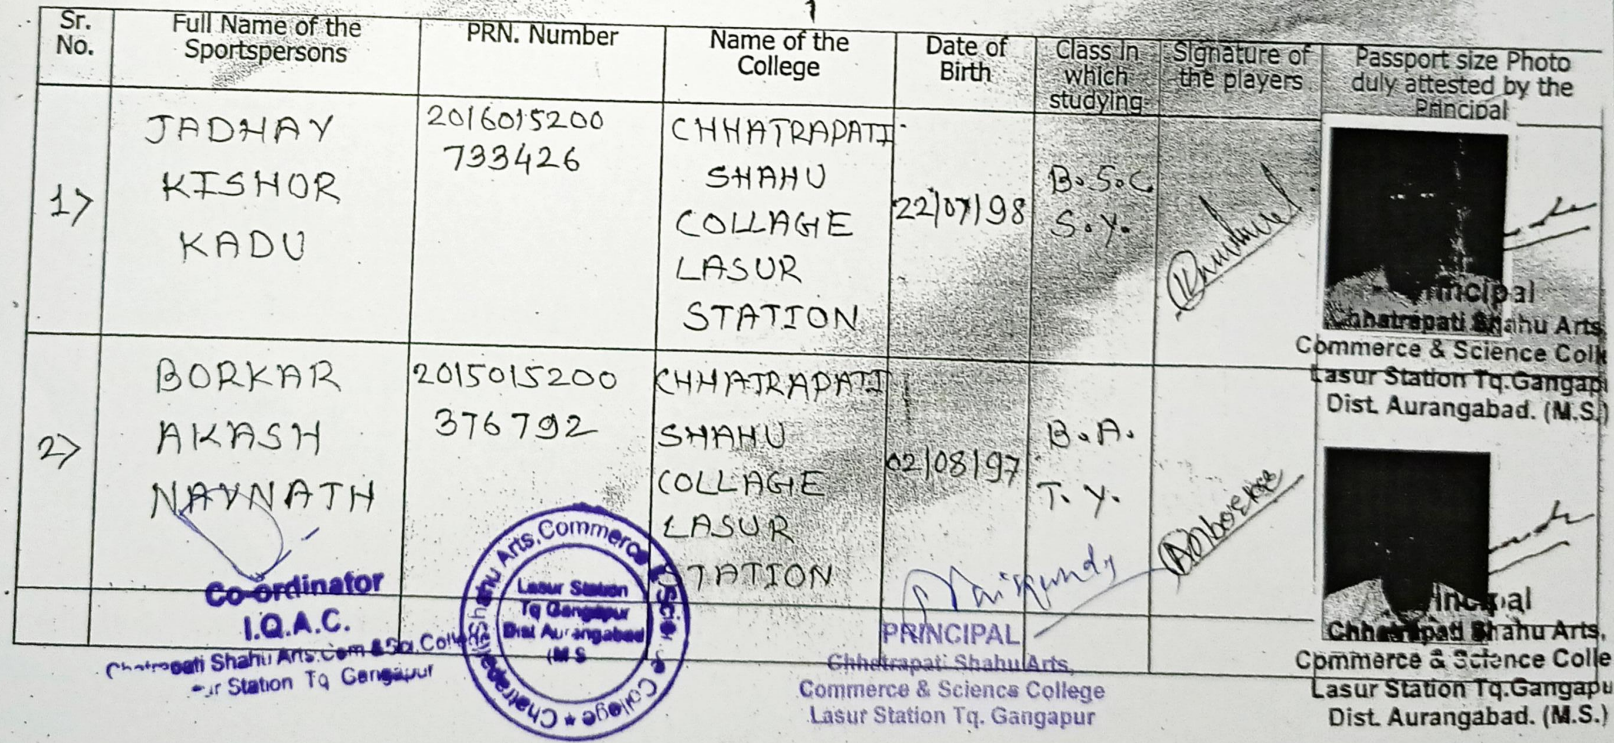 1
Sr. No.
Full Name of the Sportspersons
PRN. Number
Name of the College
Date of Birth
Class in which studying
Signature of the players
Passport size Photo duly attested by the Principal
1>
JADHAV
KISHOR
KADU
2016015200
733426
CHHATRAPATI
SHAHU
COLLAGE
LASUR
STATION
22/07/98
B.S.C.
S.Y.
Principal
Chhatrapati Shahu Arts
Commerce & Science Colle
Lasur Station Tq.Gangap
Dist. Aurangabad. (M.S.)
2>
BORKAR
AKASH
NAVNATH
2015015200
376792
CHHATRAPATI
SHAHU
COLLAGE
LASUR
STATION
02/08/97
B.A.
T.Y.
Principal
Chhatrapati Shahu Arts,
Commerce & Science Colle
Lasur Station Tq.Gangapu
Dist. Aurangabad. (M.S.)
Co-ordinator
I.Q.A.C.
Chatrapati Shahu Arts.Com & Sci.College
ur Station Tq Gangapur
Chatrapati Shahu Arts, Commerce & Science College ★
Lasur Station
Tq Gangapur
Dist Aurangabad
(M S
PRINCIPAL
Chhatrapati Shahu Arts,
Commerce & Science College
Lasur Station Tq. Gangapur